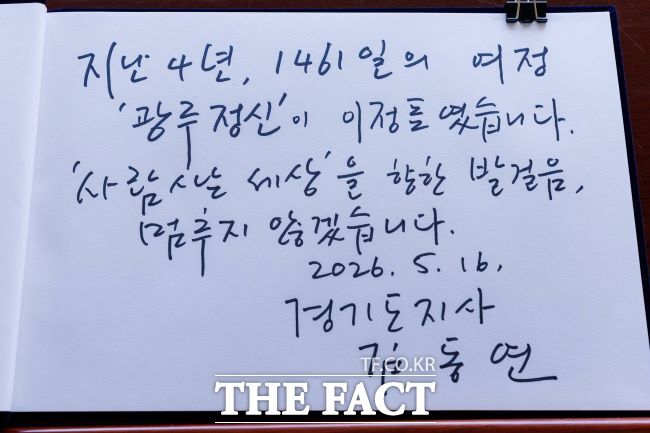 지난 4년, 1461일의 여정
'광주정신'이 이정표였습니다.
'사람 사는 세상'을 향한 발걸음,
멈추지 않겠습니다.
2026. 5. 16.
경기도지사
김동연
TF.CO.KR
THE FACT